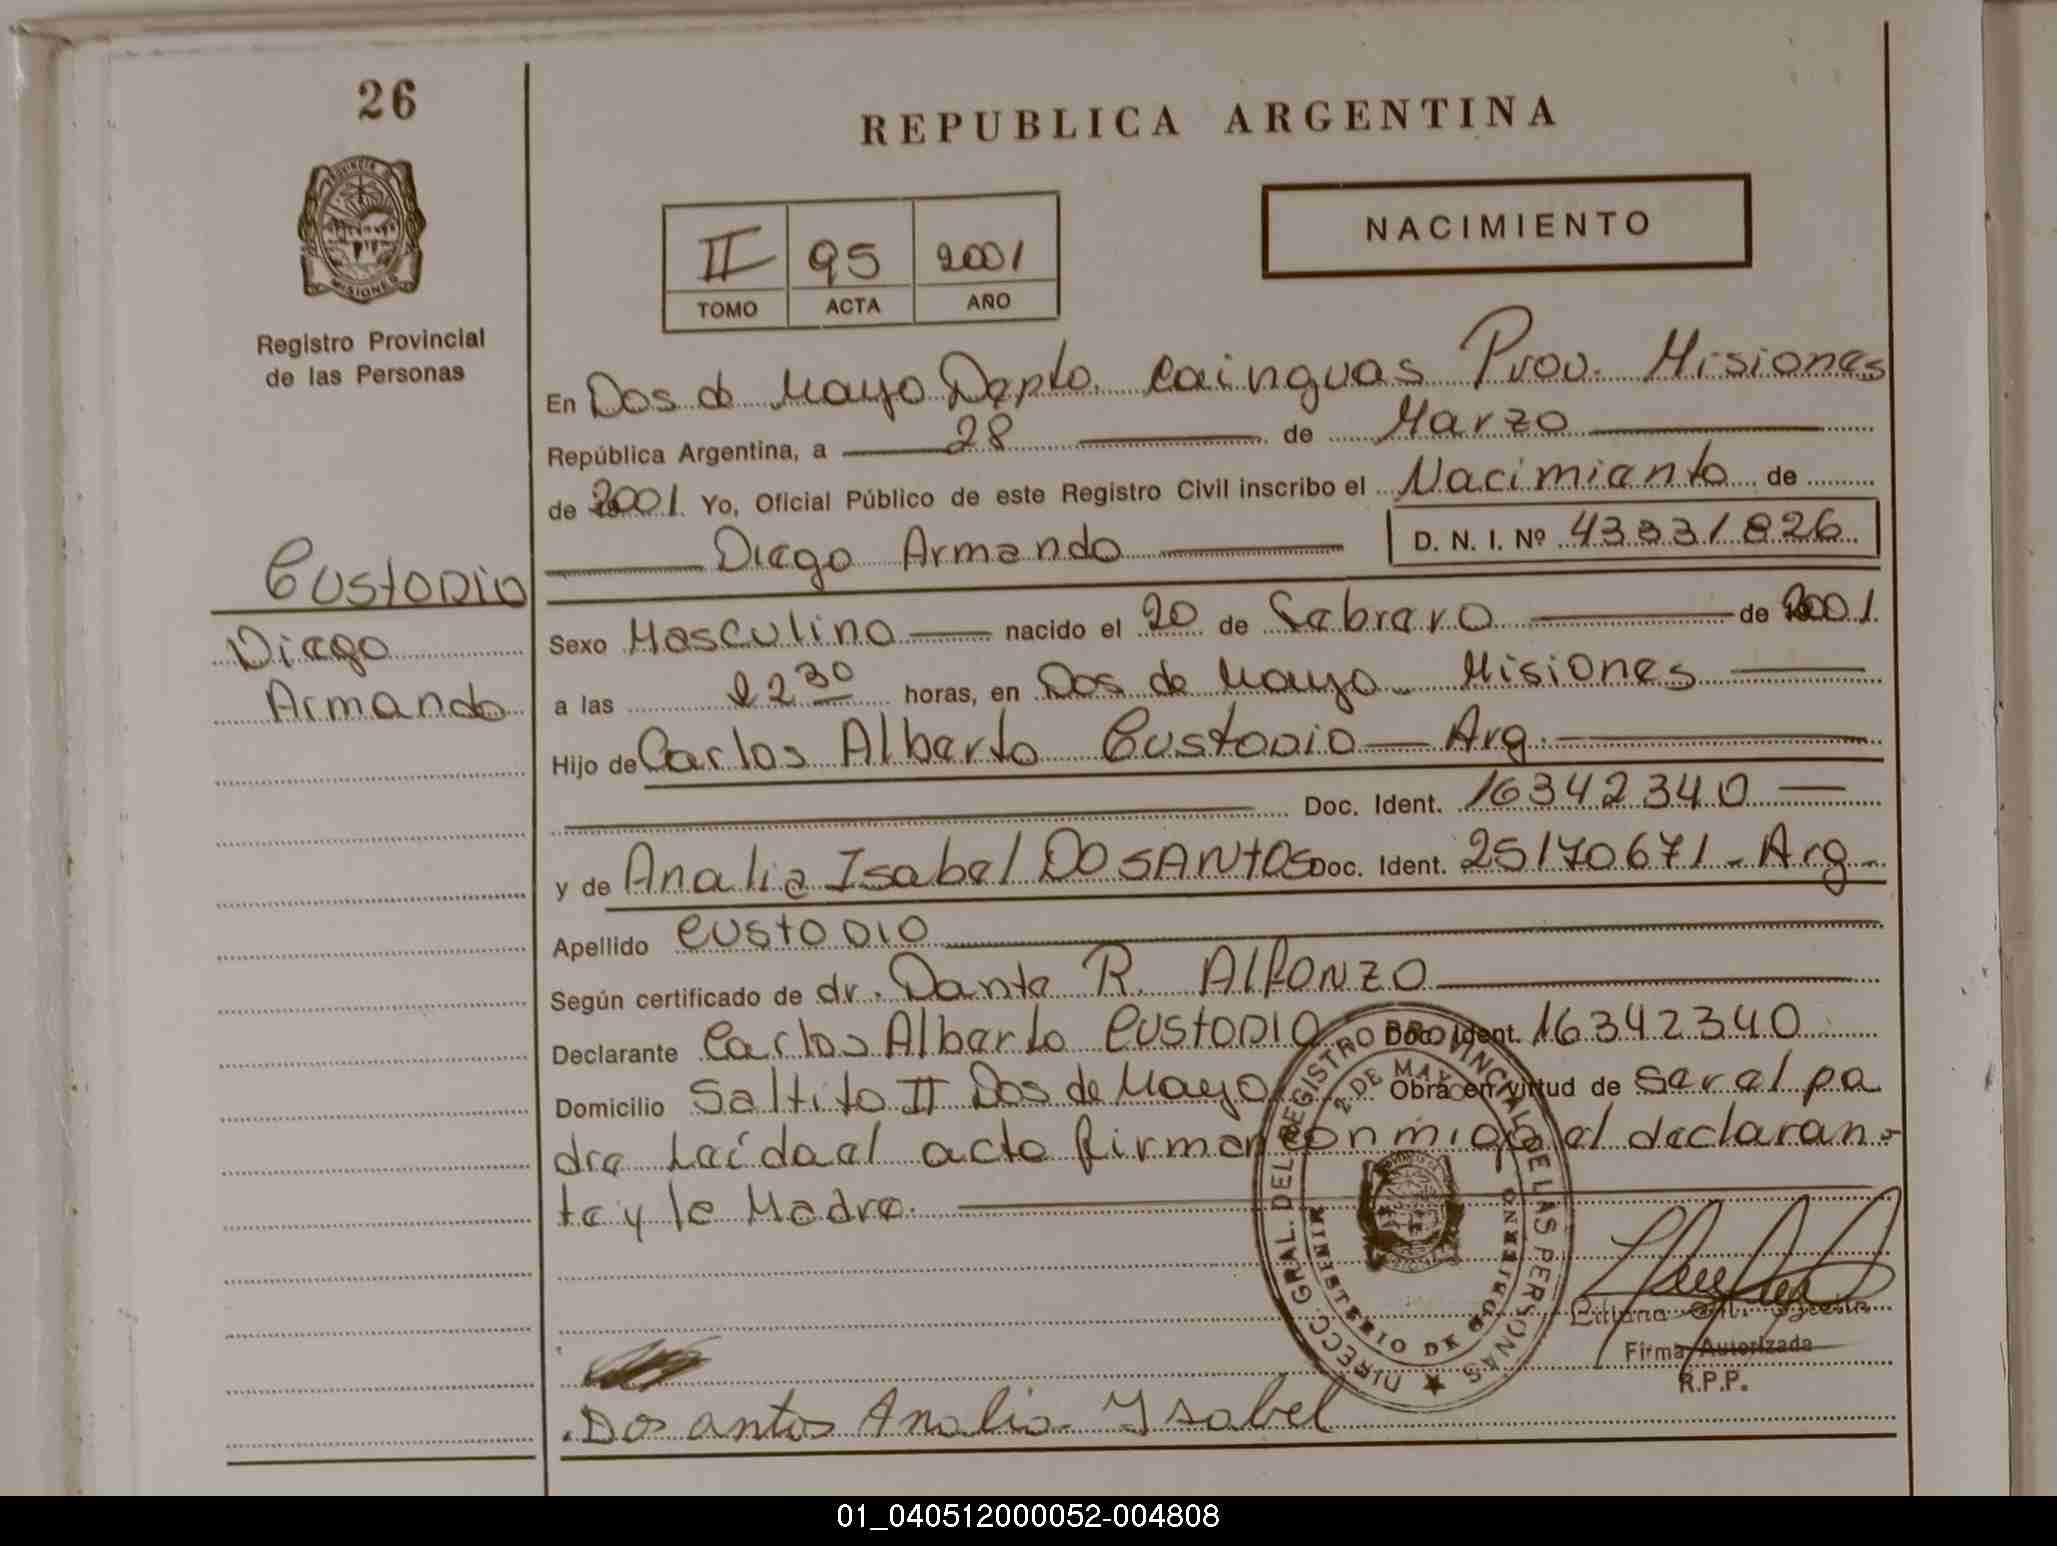 26
REPUBLICA ARGENTINA
NACIMIENTO
II 95 2001
TOMO ACTA AÑO
PROVINCIA DE
MISIONES
Registro Provincial
de las Personas
En Dos de Mayo Depto. Cainguas Prov. Misiones
República Argentina, a 28 de Marzo
de 2001. Yo, Oficial Público de este Registro Civil inscribo el Nacimiento de
Diego Armando D. N. I. Nº 43331826
Custodio
Diego
Armando
Sexo Masculino nacido el 20 de Febrero de 2001.
a las 22 30 horas, en Dos de Mayo - Misiones
Hijo de Carlos Alberto Custodio — Arg.
Doc. Ident. 16342340 —
y de Analia Isabel DOSANTOS Doc. Ident. 25170671 - Arg -
Apellido CUSTODIO
Según certificado de dr. Dante R. AlfONZO
Declarante Carlos Alberto CUSTODIO Doc. Ident. 16342340
Domicilio Saltito II Dos de Mayo Obra en virtud de ser el pa
dre Leída el acto firman conmigo el declaran-
te y la Madre.
DIRECC. GRAL. DEL REGISTRO PROVINCIAL DE LAS PERSONAS
2 DE MAYO
MINISTERIO DE GOBIERNO
Liliana
Firma Autorizada
R.P.P.
Dosantos Analia Ysabel
01_040512000052-004808